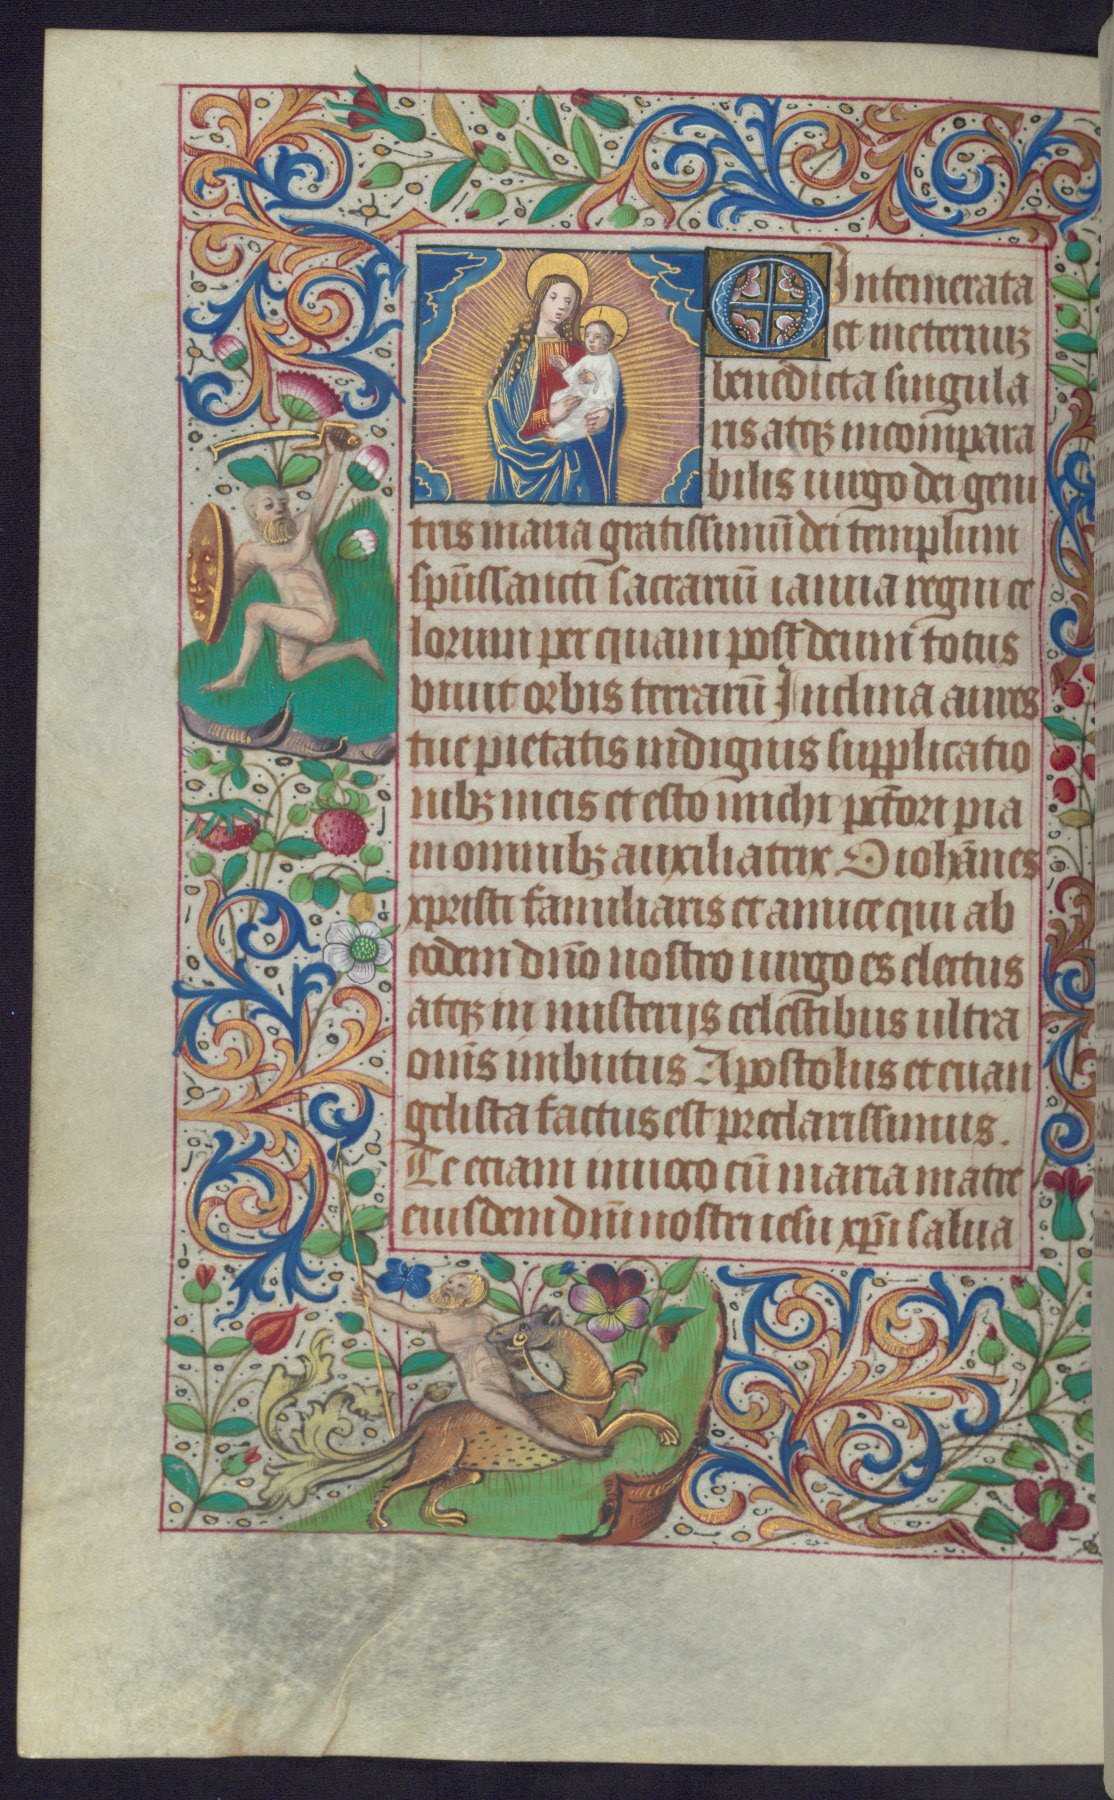 O Intemerata
et ineternuʒ
benedicta singula
ris atqʒ incompara
bilis uirgo dei geni
tris maria gratissimū dei templum
spūssancti sacrariū ianua regni ce
lorum per quam post deum totus
viuit orbis terrarū Inclina aures
tue pietatis indignis supplicatio
nibʒ meis et esto michi pctōri pia
in omnibʒ auxiliatrix O iohānes
xpristi familiaris et amice qui ab
eodem dn̄o nostro uirgo es electus
atqʒ in misterijs celestibus ultra
om̄s imbutus Apostolus et euan
gelista factus est preclarissimus.
Te eciam inuoco cū maria matre
eiusdem dn̄i nostri iesu xp̄i salua